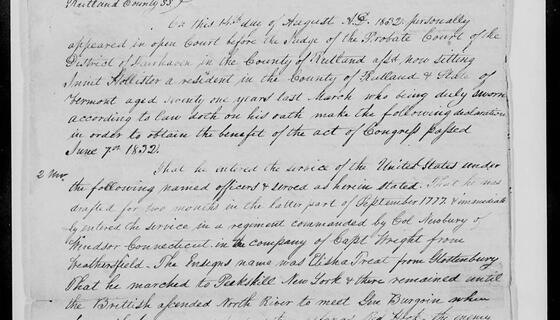 Rutland County SS
On this 14th due of August A.D. 1832 personally
appeared in open Court before the Judge of the Probate Court of the
District of Fairhaven in the County of Rutland afsd, now sitting
Innit Hollister a resident in the County of Rutland & State of
Vermont aged Seventy one years last March who being duly sworn
according to law doth on his oath make the following declaration
in order to obtain the benefit of the act of Congress passed
June 7th 1832.
That he entered the service of the United States under
2 Mo. the following named officers & served as herein stated. That he was
drafted for two months in the latter part of September 1777 & immediate
ly entered the service in a regiment commanded by Col Newbury of
Windsor Connecticut in the company of Capt Wright from
Weathersfield - The Ensigns name was Elisha Treat from Glostenbury
That he marched to Peekskill New York & there remained until
the Brittish ascended North River to meet Gen Burgoin when
the enemy